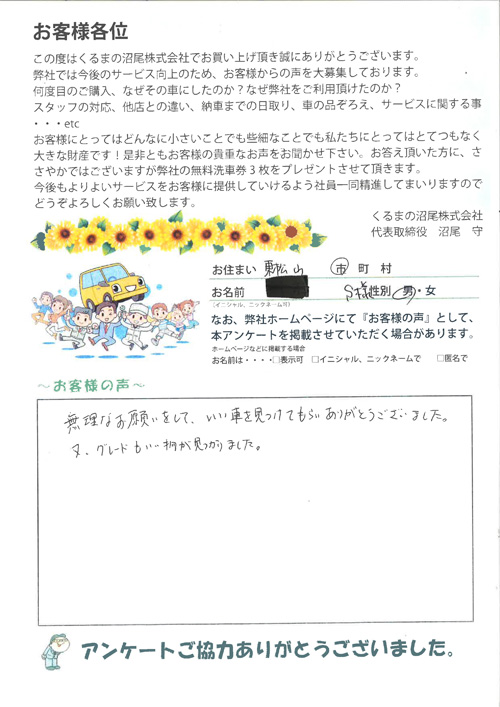 お客様各位
この度はくるまの沼尾株式会社でお買い上げ頂き誠にありがとうございます。
弊社では今後のサービス向上のため、お客様からの声を大募集しております。
何度目のご購入、なぜその車にしたのか？なぜ弊社をご利用頂けたのか？
スタッフの対応、他店との違い、納車までの日取り、車の品ぞろえ、サービスに関する事
・・・etc
お客様にとってはどんなに小さいことでも些細なことでも私たちにとってはとてつもなく
大きな財産です！是非ともお客様の貴重なお声をお聞かせ下さい。お答え頂いた方に、さ
さやかではございますが弊社の無料洗車券３枚をプレゼントさせて頂きます。
今後もよりよいサービスをお客様に提供していけるよう社員一同精進してまいりますので
どうぞよろしくお願い致します。
くるまの沼尾株式会社
代表取締役　沼尾　守
お住まい 東松山 市 町 村
お名前 S様 性別 男・女
（イニシャル、ニックネーム可）
なお、弊社ホームページにて『お客様の声』として、
本アンケートを掲載させていただく場合があります。
ホームページなどに掲載する場合
お名前は・・・・□表示可　□イニシャル、ニックネームで　□匿名で
〜お客様の声〜
無理なお願いをして、いい車を見つけてもらいありがとうございました。
又、グレードもいい物が見つかりました。
アンケートご協力ありがとうございました。